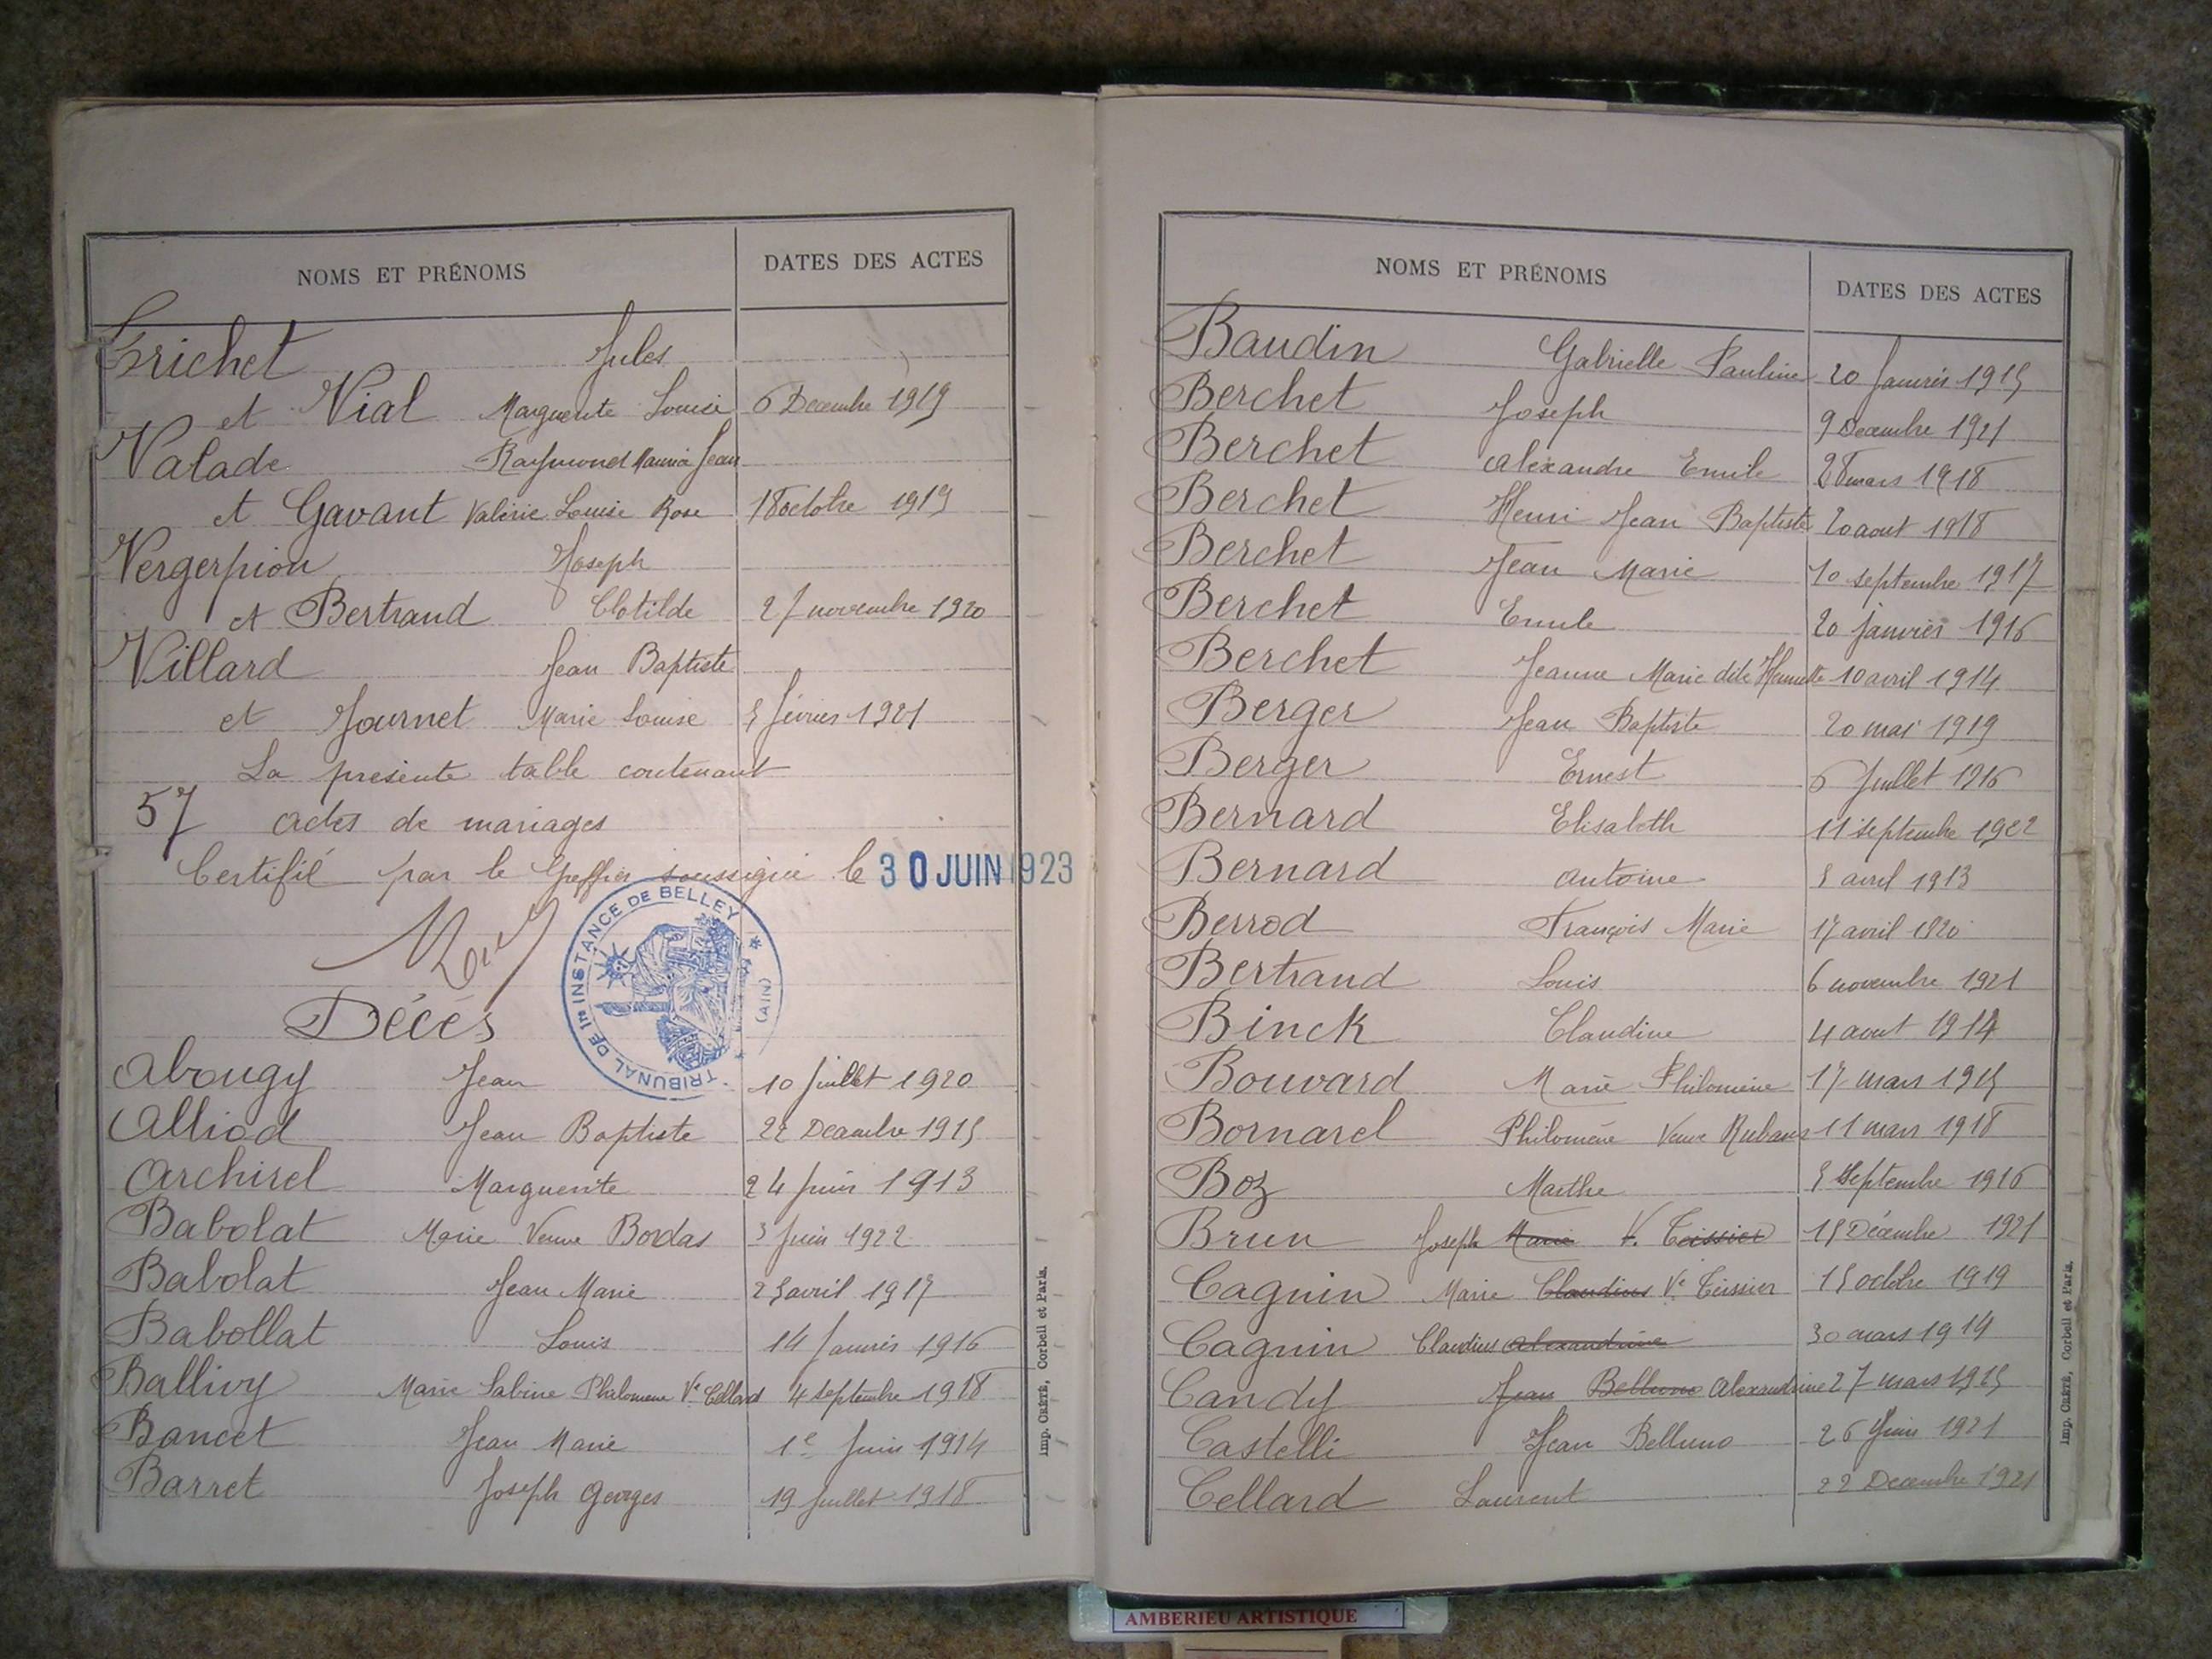 NOMS ET PRÉNOMS DATES DES ACTES
Trichet Jules
et Vial Marguerite Louise 6 Decembre 1919
Valade Raymond Maurice Jean
et Gavant Valérie Louise Rose 18 octobre 1919
Vergerpion Joseph
et Bertrand Clotilde 27 novembre 1920
Villard Jean Baptiste
et Journet Marie Louise 5 février 1921
La présente table contenant
57 actes de mariages
Certifié par le Greffier soussigné le 30 JUIN 1923
TRIBUNAL DE 1re INSTANCE DE BELLEY (AIN)
Décès
Abougy Jean 10 juillet 1920
Alliod Jean Baptiste 22 Decembre 1915
Archirel Marguerite 24 juin 1913
Babolat Marie Veuve Bordas 3 juin 1922
Babolat Jean Marie 25 avril 1917
Babollat Louis 14 janvier 1916
Ballivy Marie Sabine Philomene Ve Cellard 4 septembre 1918
Bancet Jean Marie 1e juin 1914
Barret Joseph Georges 19 juillet 1918
Imp. CRÉTÉ, Corbeil et Paris.
NOMS ET PRÉNOMS DATES DES ACTES
Baudin Gabrielle Pauline 20 janvier 1915
Berchet Joseph 9 Decembre 1921
Berchet Alexandre Emile 28 mars 1918
Berchet Henri Jean Baptiste 20 aout 1918
Berchet Jean Marie 10 septembre 1917
Berchet Emile 20 janvier 1916
Berchet Jeanne Marie dite Henriette 10 avril 1914
Berger Jean Baptiste 20 mai 1919
Berger Ernest 6 juillet 1916
Bernard Elisabeth 11 septembre 1922
Bernard Antoine 5 avril 1913
Berrod François Marie 17 avril 1920
Bertrand Louis 6 novembre 1921
Binck Claudine 4 aout 1914
Bouvard Marie Philomène 17 mars 1915
Bornarel Philomène Veuve 11 mars 1918
Boz Marthe 5 septembre 1916
Brun Joseph Marie V. Teissier 15 Décembre 1921
Cagnin Marie Claudius Ve Teissier 15 octobre 1919
Cagnin Claudius Alexandrine 30 mars 1914
Candy Jean Belluno Alexandrine 27 mars 1915
Castelli Jean Belluno 26 juin 1921
Cellard Laurent 22 Decembre 1921
Imp. CRÉTÉ, Corbeil et Paris.
AMBERIEU ARTISTIQUE